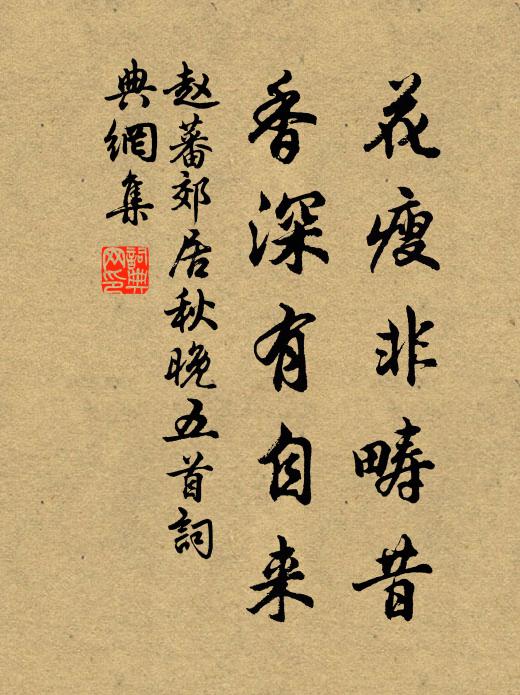 花瘦非畴昔
香深有自来
赵蕃郊居秋晚五首詞
典網集
詞典
网印